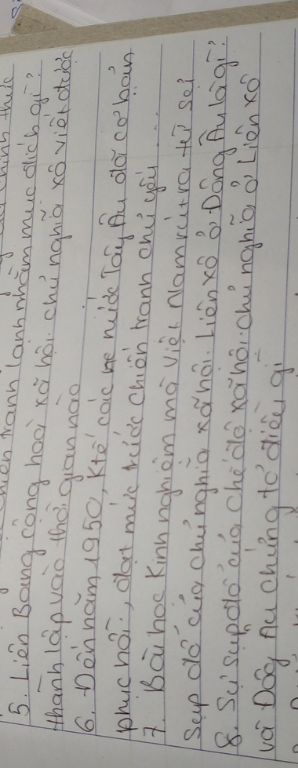 chiến tranh lạnh nhằm mục đích gì?
5. Liên Bang cộng hoà xã hội chủ nghĩa xô viết được
thành lập vào thời gian nào
6. Đến năm 1950, Ktế các nước Tây Âu đã cơ bản
phục hồi, đạt mức trước chiến tranh chủ yếu ...
7. Bài học kinh nghiệm mà Việt Nam rút ra từ sự
sụp đổ của chủ nghĩa xã hội Liên xô ở Đông Âu là gì?
8. Sự sụp đổ của chế độ xã hội chủ nghĩa ở Liên xô
và Đôg Âu chứng tỏ điều gì